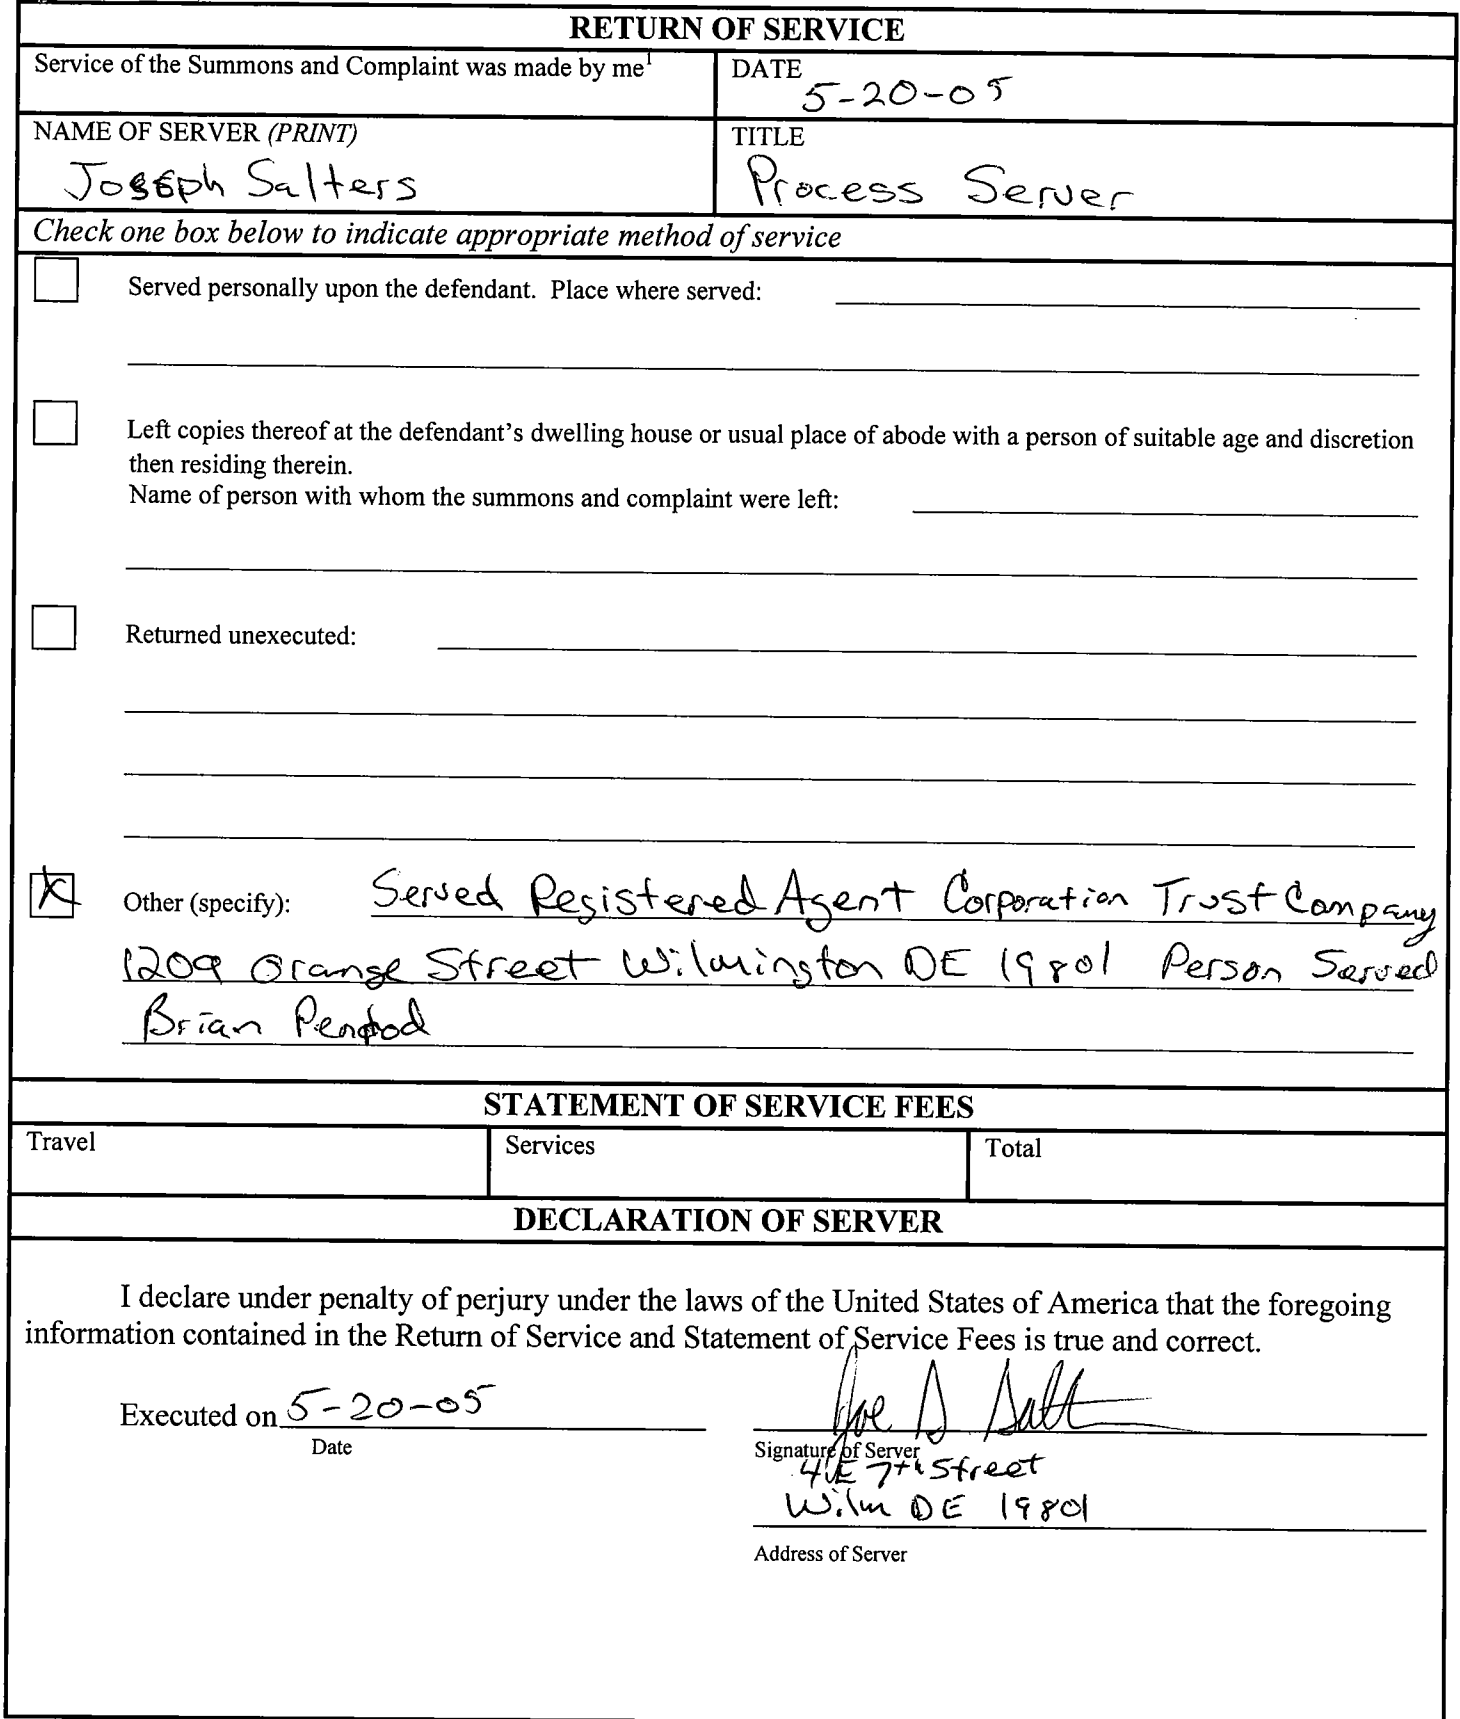 RETURN OF SERVICE
Service of the Summons and Complaint was made by me¹
DATE
5-20-05
NAME OF SERVER (PRINT)
Joseph Salters
TITLE
Process Server
Check one box below to indicate appropriate method of service
Served personally upon the defendant. Place where served:
Left copies thereof at the defendant's dwelling house or usual place of abode with a person of suitable age and discretion
then residing therein.
Name of person with whom the summons and complaint were left:
Returned unexecuted:
X
Other (specify): Served Registered Agent Corporation Trust Company
1209 Orange Street Wilmington DE 19801 Person Served
Brian Penrod
STATEMENT OF SERVICE FEES
Travel
Services
Total
DECLARATION OF SERVER
I declare under penalty of perjury under the laws of the United States of America that the foregoing
information contained in the Return of Service and Statement of Service Fees is true and correct.
Executed on 5-20-05
Date
Signature of Server
4 E 7th Street
Wilm DE 19801
Address of Server